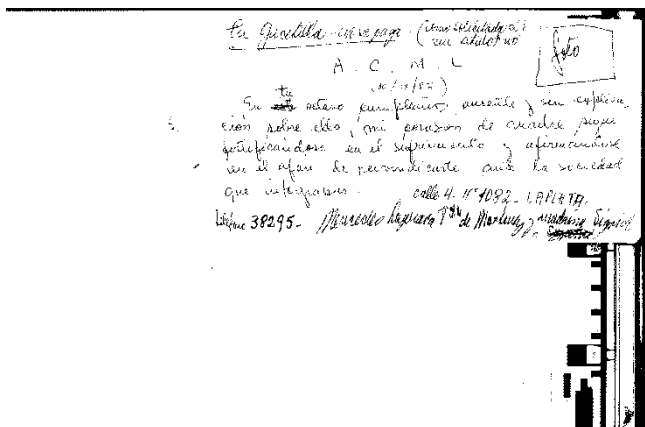 En Gacetilla - no se paga (como solicitada o sin título) no
foto
A. C. M. L
tu
En octavo cumpleaños ausente y sin explica-
ción sobre ello, mi corazón de madre sigue
fortificandose en el sufrimiento y afirmandose
en el afan de reivindicarte ante la sociedad
que integrabas. calle 4. Nº 1082 - LA PLATA.
Teléfono 38295 - Mercedes de Martinez y